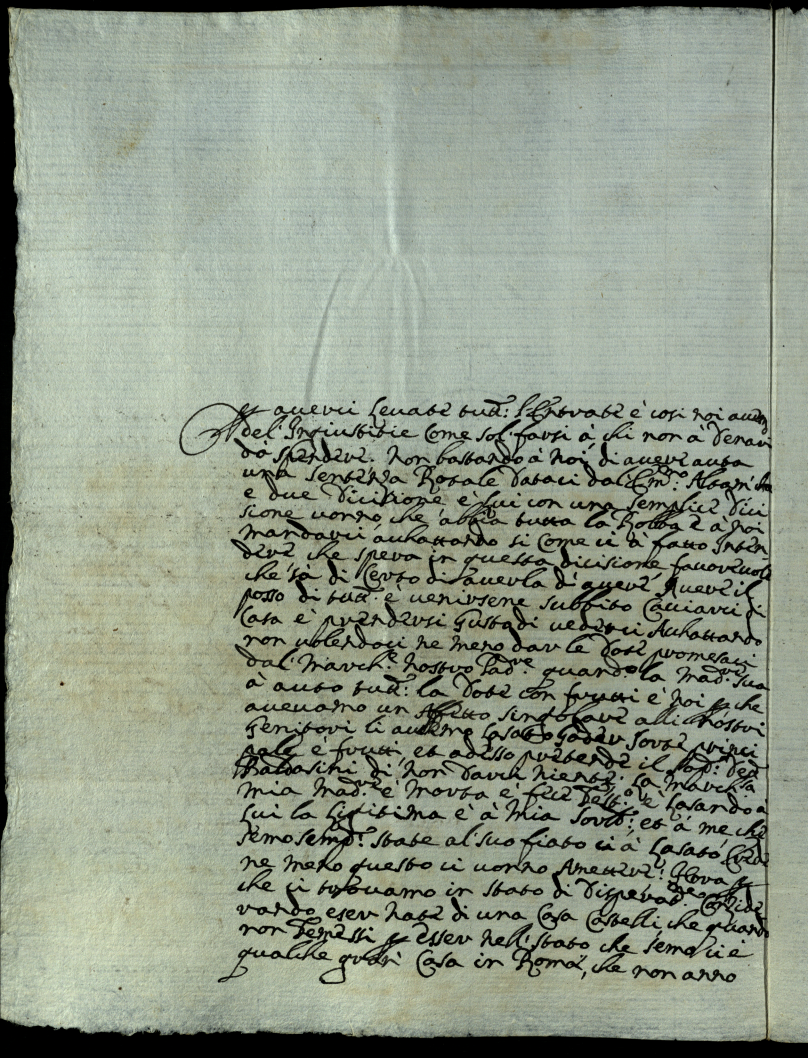 p averci levate tutt: l'Entrate è cosi noi
del'Ingiustitie Come sol farsi à chi non à Denari
da spendere. Non bastando à noi di avere auta
una sentenza Rotale Dataci dal' Em:mo Altovi
e due Dicisione è lui con una semplice Dici
sione vonno, che abbia tutta la Robba è à noi
mandarci achattando si come ci à fatto Inten
dere che spera in questa dicisione favorevole
che sà di Certo di averla d'avere Avere il
posso di tutt: è venirsene subbito Cacciarci di
Casa è prendersi Gusto di vederci Achattando
non volendoci ne meno dar le Dote promesaci
dal' March:e nostro Pad:re quando la Mad:re sua
à auto tutt: la Dote con frutti è Noi p che
avevamo un Affetto singolare alli nostri
Genitori li avemo lasato Goder Sorte princi
pale è frutti, et adesso pretende il
Baldasini di non Darci Niente: la March:sa
mia Mad:re è Morta è fece Test:o è lasando a
lui la Legitima è à Mia Sorel: et à me che
Semo Semp:re state al suo fiato ci à lasato
ne meno questo ci vonno Amettere: Hora p
che ci trovamo in stato di Disperad:ne Conside
rando eser nate di una Casa Castelli, che quando
non p esser nell'stato che Semo ci è
qualche Casa in Roma, che non anno